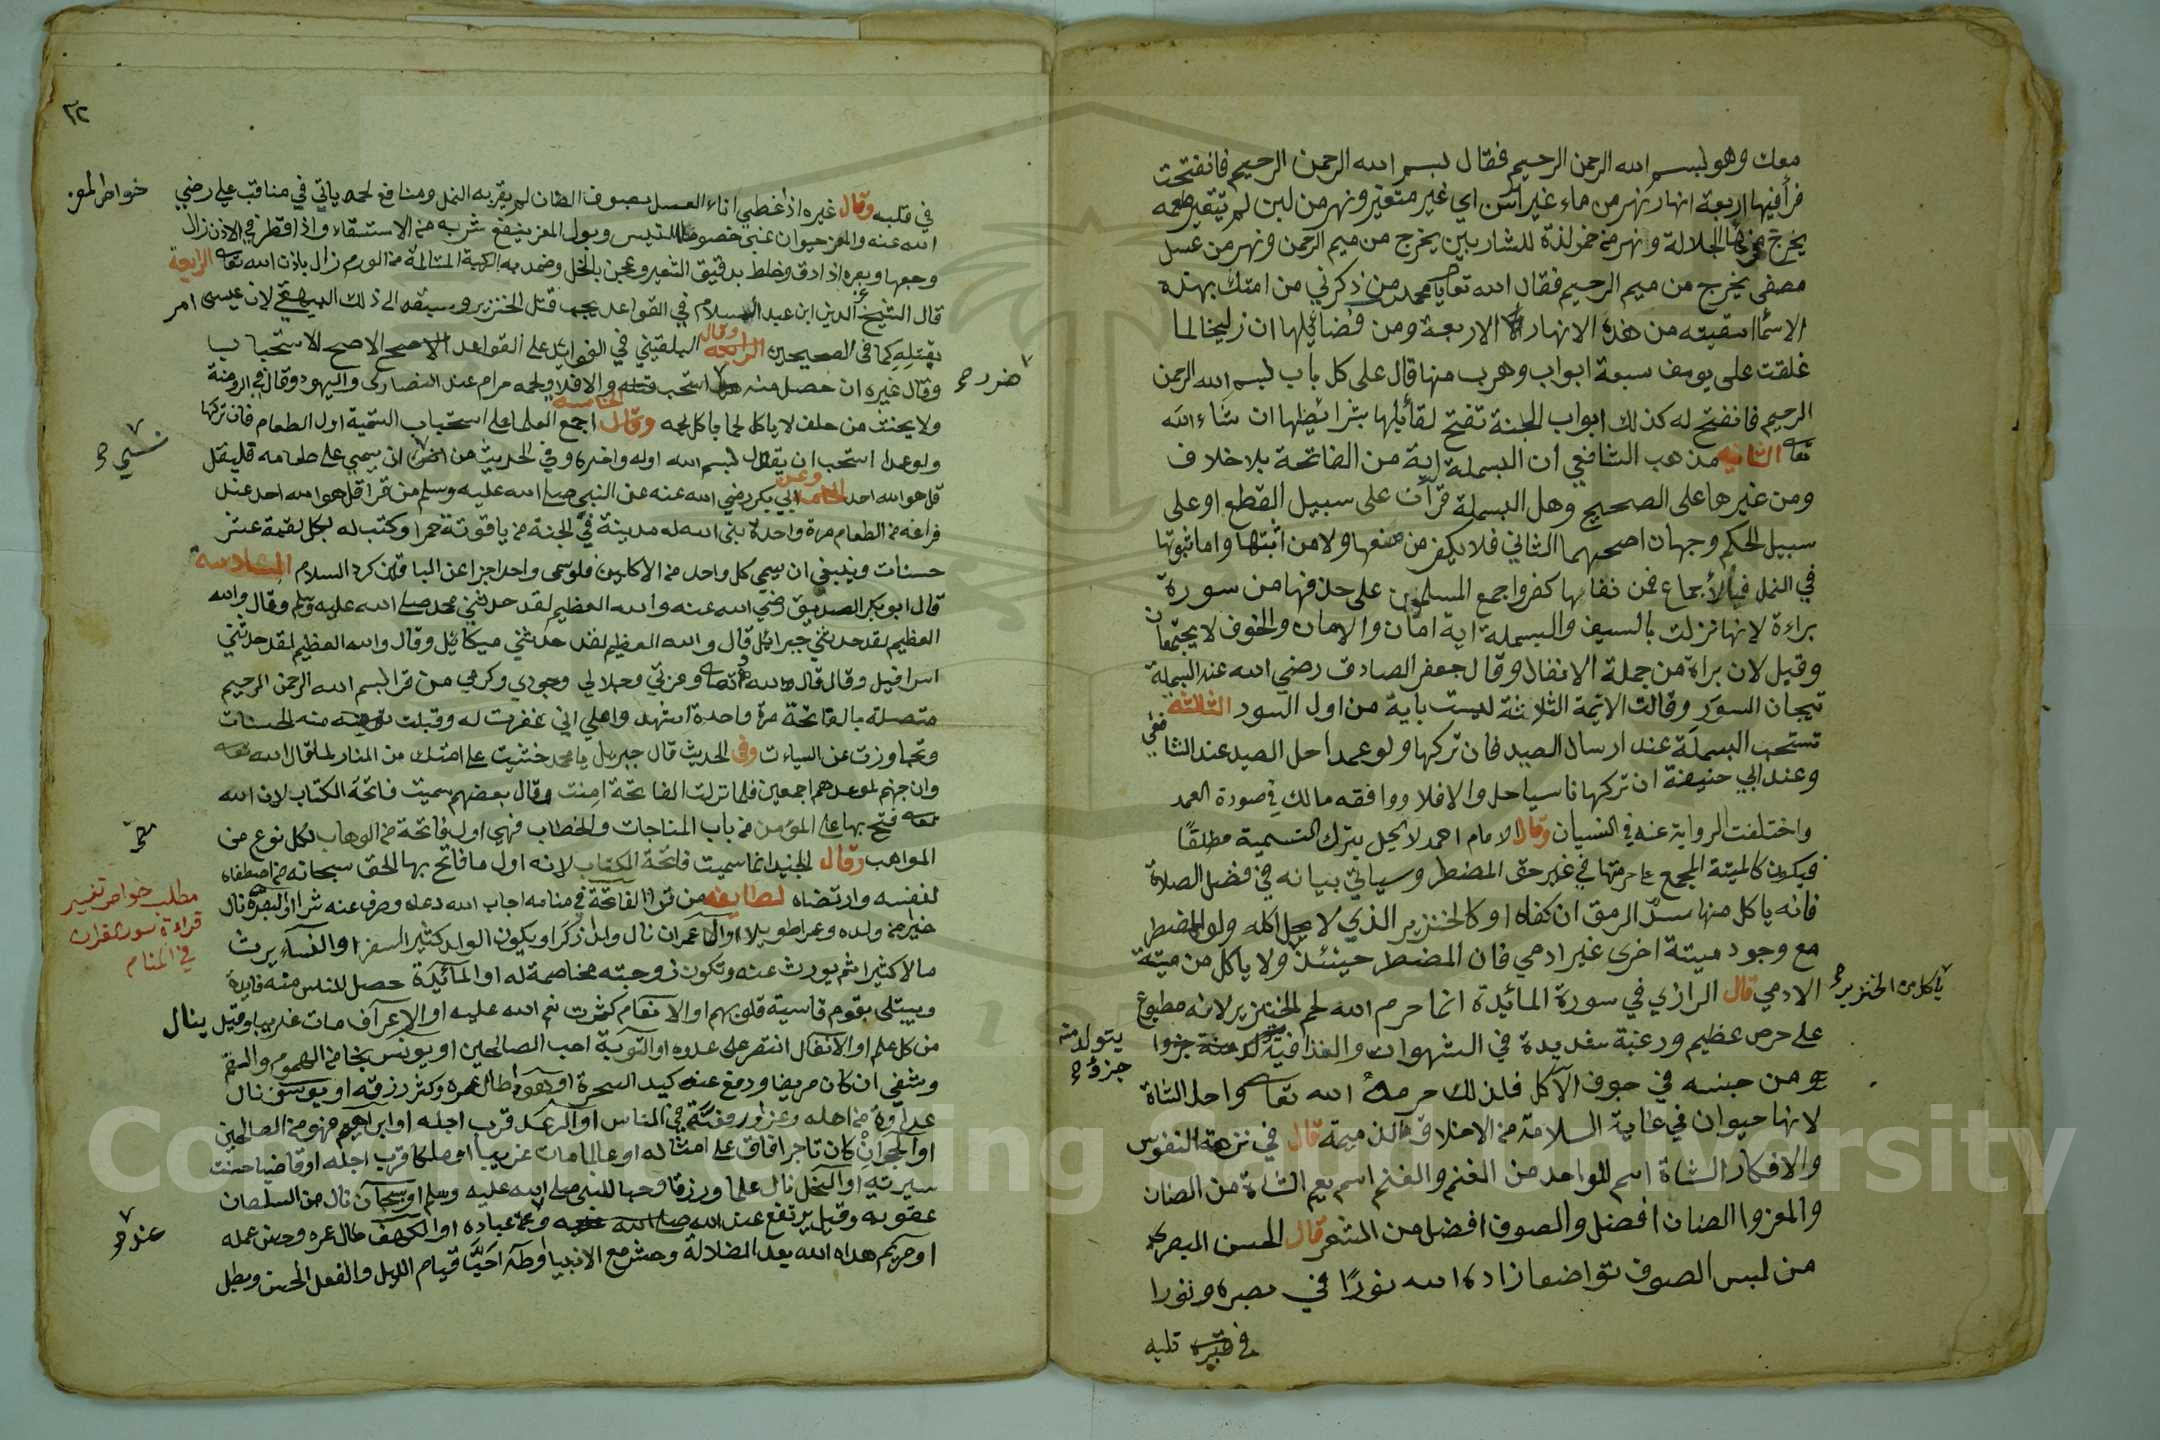 معك وهو بسم الله الرحمن الرحيم فقال بسم الله الرحمن الرحيم فانفتحت
فرأ فيها اربعة انهار نهر من ماء غير اسن اي غير متغير ونهر من لبن لم يتغير طعمه
يخرج من ها الجلالة ونهر من خمر لذة للشاربين يخرج من ميم الرحمن ونهر من عسل
مصفى يخرج من ميم الرحيم فقال الله تعا يا محمد من ذكرني من امتك بهذه
الاسما اسقيته من هذه الانهار الاربعة ومن فضائلها ان زليخا لما
غلقت على يوسف سبعة ابواب وهرب منها قال على كل باب بسم الله الرحمن
الرحيم فانفتح له كذلك ابواب الجنة تفتح لقائلها بشرائطها ان شاء الله
تعا الثانية مذهب الشافعي ان البسملة اية من الفاتحة بلا خلاف
ومن غيرها على الصحيح وهل البسملة قرآن على سبيل القطع او على
سبيل الحكم وجهان اصحهما الثاني فلا يكفر من منعها ولا من اثبتها واما ثبوتها
في النمل فبالأجماع فمن نفاها كفر واجمع المسلمون على حذفها من سورة
براءة لانها نزلت بالسيف والبسملة اية امان والامان والخوف لا يجتمعان
وقيل لان براة من جملة الانفال وقال جعفر الصادق رضي الله عنه البسملة
تيجان السور وقالت الائمة الثلاثة ليست باية من اول السور الثالثة
تستحب البسملة عند ارسال الصيد فان تركها ولو عمدا حل الصيد عند الشافعي
وعند ابي حنيفة ان تركها ناسيا حل والا فلا ووافقه مالك في صورة العمد
واختلفت الرواية عنه في النسيان وقال الامام احمد لا يحل بترك التسمية مطلقا
فيكون كالميتة المجمع على حرمتها في غير حق المضطر وسياتي بيانه في فضل الصلاة
فانه ياكل منها سد الرمق ان كفاه او كالخنزير الذي لا يحل اكله ولو للمضطر
مع وجود ميتة اخرى غير ادمي فان المضطر حينئذ ولا ياكل من ميتة
ياكل من الخنزير صح
الادمي قال الرازي في سورة المائدة انما حرم الله لحم الخنزير لانه مطبوع
على حرص عظيم ورغبة شديدة في الشهوات والغذا جزوا
يتولد منه
جزؤ صح
ومن جنسه في جوف الآكل فلذلك حرمه الله تعا واحل الشاة
لانها حيوان في غاية السلامة من الاخلاق الذميمة قال في نزهة النفوس
والافكار الشاة اسم للواحد من الغنم والغنم اسم يعم الشاة من الضان
والمعز والضان افضل والصوف افضل من الشعر قال الحسن البصري
من لبس الصوف تواضعا زاده الله نورا في بصره ونورا
في قلبه
٣٢
في قلبه وقال غيره اذا غطي اناء العسل بصوف الضان لم يقربه النمل ومنافع لحمه ياتي في مناقب علي رضي
خواطر المعز
الله عنه والمعز حيوان غبي خصوصا التيس وبول المعز ينفع شربه من الاستسقاء واذا قطر في الاذن زال
وجعها وبعره اذا دق وخلط بدقيق الشعير وعجن بالخل وضمد به الركبة المتالمة من الورم زال باذن الله تعا الرابعة
قال الشيخ عز الدين ابن عبد السلام في القواعد يجب قتل الخنزير وسبقه الى ذلك البيهقي لان عيسى امر
بقتله كما في الصحيحين وقال البلقيني في الفوائد على القواعد الاصح الاستحباب
وقال غيره ان حصل منه استحب قتله والا فلا ولحمه حرام عند النصارى واليهود وقال في الروضة
ضرر صح
ولا يحنث من حلف لا ياكل لحما باكل لحمه الخامسة وقال اجمع العلما على استحباب التسمية اول الطعام فان تركها
ولو عمدا استحب ان يقول بسم الله اوله واخره وفي الحديث من ان يسمي على طعامه فليقل
نسي صح
قل هو الله احد وعن ابي بكر رضي الله عنه عن النبي صلى الله عليه وسلم من قرا قل هو الله احد عند
فراغه من الطعام مرة واحدة بنى الله له مدينة في الجنة من ياقوتة حمرا وكتب له بكل لقمة عشر
حسنات وينبغي ان يسمي كل واحد من الاكلين فلو سمى واحد اجزا عن الباقين كرد السلام السادسة
قال ابو بكر الصديق رضي الله عنه والله العظيم لقد حدثني محمد صلى الله عليه وسلم وقال والله
العظيم لقد حدثني جبرائيل قال والله العظيم لقد حدثني ميكائيل وقال والله العظيم لقد حدثني
اسرافيل وقال قال الله تعا وعزتي وجلالي وجودي وكرمي من قرا بسم الله الرحمن الرحيم
متصلة بالفاتحة مرة واحدة اشهدوا علي اني غفرت له وقبلت منه الحسنات
وتجاوزت عن السيات وفي الحديث قال جبريل يا محمد خشيت على امتك من النار لما قال الله تعا
وان جهنم لموعدهم اجمعين فلما نزلت الفاتحة امنت وقال بعضهم سميت فاتحة الكتاب لان الله
تعا فتح بها على المؤمن من باب المناجات والخطاب فهي اول فاتحة من الوهاب لكل نوع من
المواهب وقال الجنيد انما سميت فاتحة الكتاب لانه اول ما فاتح بها الحق سبحانه من اصطفاه
لنفسه وارتضاه لطايفه من قرا الفاتحة في منامه اجاب الله دعاه وصرف عنه شرا او البقرة نال
مطلب خواص تفسير
قراءة سور القران
في المنام
خيرا من ولده وعمرا طويلا او ال عمران نال ولدا ذكرا ويكون الولد كثير السفر او النساء يرث
مالا كثيرا ثم يورث عنه وتكون زوجته مخاصمة له او المائدة حصل للناس منه فايدة
ويبتلى بقوم قاسية قلوبهم او الانعام كثرت نعم الله عليه او الاعراف مات غريبا وقيل ينال
من كل علم او الانفال انتصر على عدوه او التوبة احب الصالحين او يونس نجا من الهموم والسقم
وشفي ان كان مريضا ودفع عنه كيد السحرة او هود طال عمره وكثر رزقه او يوسف نال
عداوة من اهله وعزا ورفعة في الناس او الرعد قرب اجله او ابراهيم فهو من الصالحين
او الحجر ان كان تاجرا فاق على امثاله او عالما مات غريبا او ملكا قرب اجله او قاضيا حسنت
سيرته او النحل نال علما ورزقا وحبا للنبي صلى الله عليه وسلم او سبحان نال من السلطان
عقوبة وقيل يرتفع عند الله وعباده او الكهف طال عمره وحسن عمله
عند صح
او مريم هداه الله بعد الضلالة وحشر مع الانبيا او طه احب قيام الليل والفعل الحسن وبطل